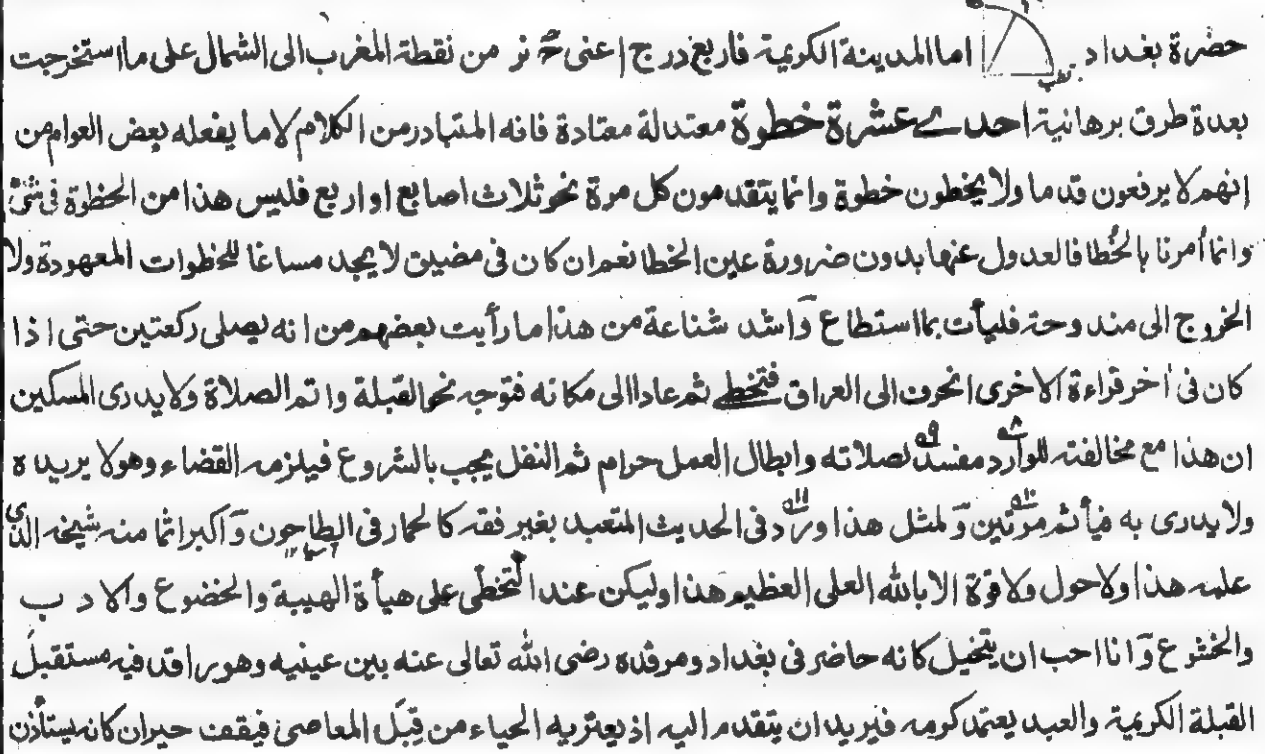 حضرة بغداد اما المدينة الكريمة فاربع درج اعنى ح نر من نقطة المغرب الى الشمال على ما استخرجت
بعدة طرق برهانية احدى عشرة خطوة معتدلة معتادة فانه المتبادر من الكلام لا ما يفعله بعض العوام من
انهم لا يرفعون قدما ولا يخطون خطوة وانما يتقدمون كل مرة نحو ثلاث اصابع او اربع فليس هذا من الخطوة فى شئ
وانما أمرنا بالخُطا فالعدول عنها بدون ضرورة عين الخطا نعم ان كان فى مضيق لا يجد مساغا للخطوات المعهودة ولا
الخروج الى مندوحة فليأت بما استطاع وَاشد شناعة من هذا ما رأيت بعضهم من انه يصلى ركعتين حتى اذا
كان فى اخر قراءة الاخرى انحرف الى العراق فتخطى ثم عاد الى مكانه فتوجه نحو القبلة واتم الصلاة ولا يدرى المسكين
ان هذا مع مخالفته للوارد مفسد لصلاته وابطال العمل حرام ثم النفل يجب بالشروع فيلزمه القضاء وهو لا يريده
ولا يدرى به فيأثم مرتين وَلمثل هذا ورد فى الحديث المتعبد بغير فقه كالحمار فى الطاحون وَاكبر اثما منه شيخه الذى
علمه هذا ولا حول ولا قوة الا بالله العلى العظيم هذا وليكن عند التخطى على هيأة الهيبة والخضوع والادب
والخشوع وَانا احب ان يتخيل كانه حاضر فى بغداد ومرقده رضى الله تعالى عنه بين عينيه وهو راقد فيه مستقبلَ
القبلة الكريمة والعبد يعتمد كرمه فيريد ان يتقدم اليه اذ يعتريه الحياء من قِبَل المعاصى فيقف حيران كانه يستأذن